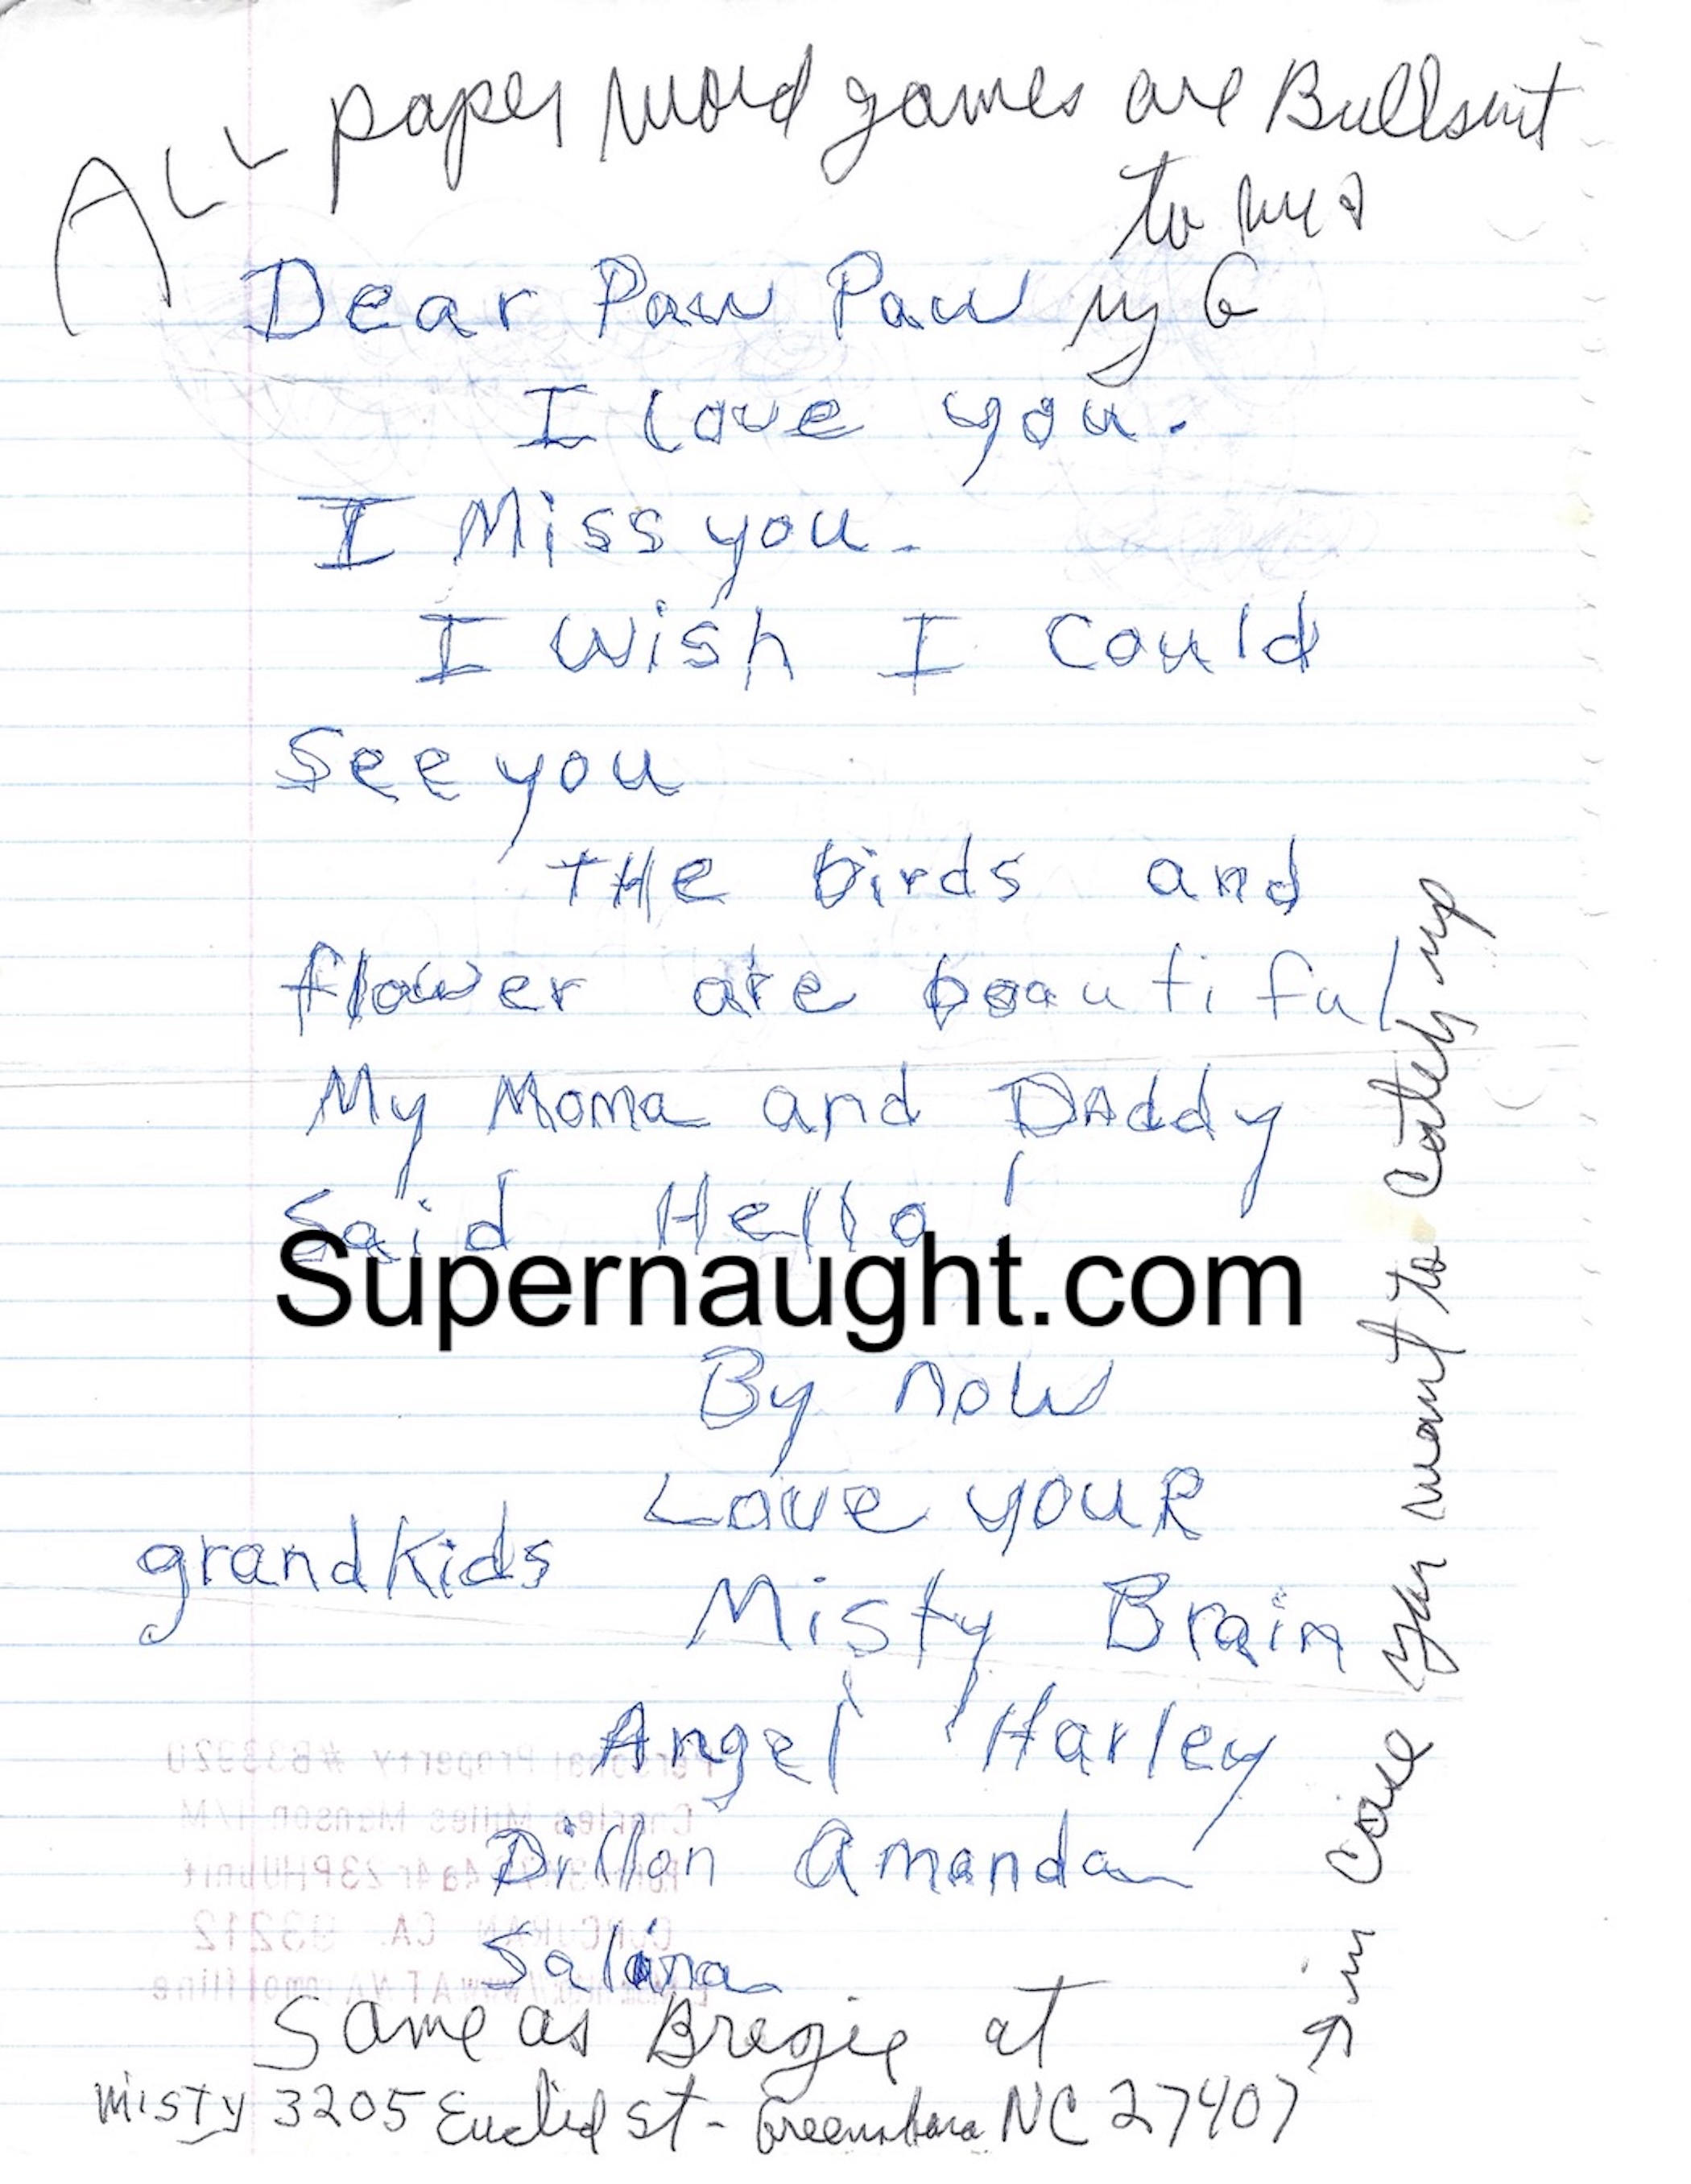 ALL paper word games are Bullshit
to me
Dear Paw Paw my G
I Love you.
I Miss you.
I wish I could
See you
THe birds and
flower are beautiful
My Moma and DAddy
Said Hello!
Supernaught.com
By now
Love youR
grandkids
Misty Brain
Angel Harley
Dillon Amanda
Salina
Same as Bregie at
Misty 3205 Euclid St - Greensboro NC 27407
in case you want to catch up
Personal Property #B33920
Charles Milles Manson I/M
CORCORAN CA. 93212